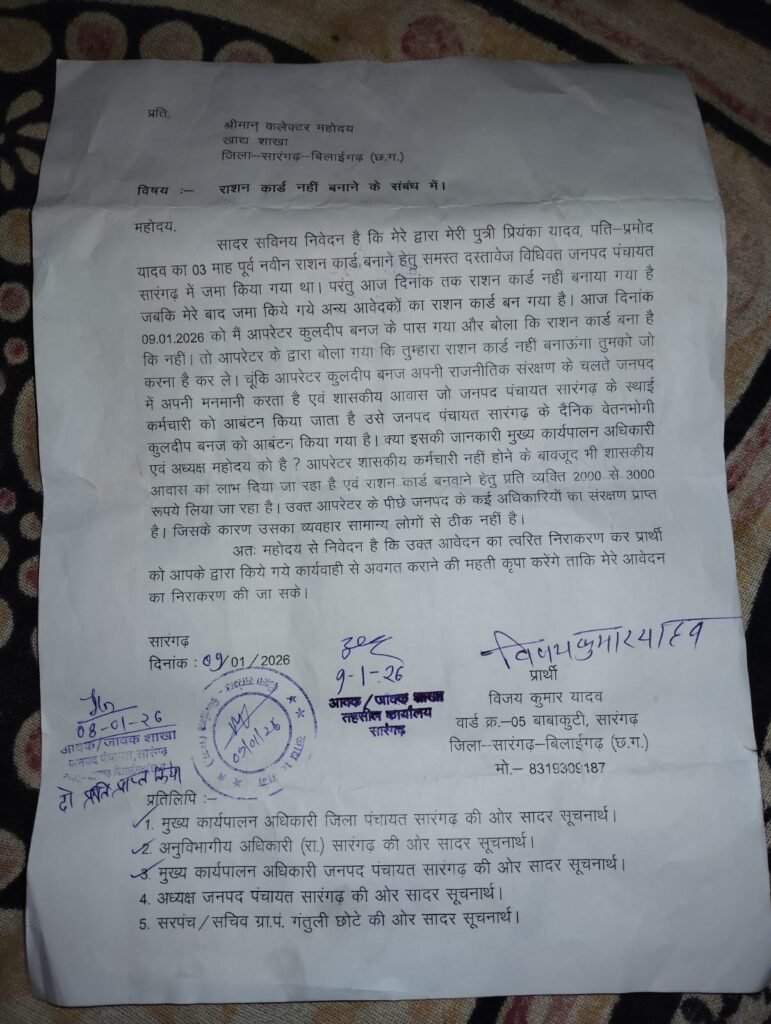 प्रति,
श्रीमान् कलेक्टर महोदय
खाद्य शाखा
जिला–सारंगढ़–बिलाईगढ़ (छ.ग.)
विषय :– राशन कार्ड नहीं बनाने के संबंध में।
महोदय,
सादर सविनय निवेदन है कि मेरे द्वारा मेरी पुत्री प्रियंका यादव, पति–प्रमोद
यादव का 03 माह पूर्व नवीन राशन कार्ड बनाने हेतु समस्त दस्तावेज विधिवत जनपद पंचायत
सारंगढ़ में जमा किया गया था। परंतु आज दिनांक तक राशन कार्ड नहीं बनाया गया है
जबकि मेरे बाद जमा किये गये अन्य आवेदकों का राशन कार्ड बन गया है। आज दिनांक
09.01.2026 को मैं आपरेटर कुलदीप बनज के पास गया और बोला कि राशन कार्ड बना है
कि नहीं। तो आपरेटर के द्वारा बोला गया कि तुम्हारा राशन कार्ड नहीं बनाऊंगा तुमको जो
करना है कर ले। चूंकि आपरेटर कुलदीप बनज अपनी राजनीतिक संरक्षण के चलते जनपद
में अपनी मनमानी करता है एवं शासकीय आवास जो जनपद पंचायत सारंगढ़ के स्थाई
कर्मचारी को आबंटन किया जाता है उसे जनपद पंचायत सारंगढ़ के दैनिक वेतनभोगी
कुलदीप बनज को आबंटन किया गया है। क्या इसकी जानकारी मुख्य कार्यपालन अधिकारी
एवं अध्यक्ष महोदय को है ? आपरेटर शासकीय कर्मचारी नहीं होने के बावजूद भी शासकीय
आवास का लाभ दिया जा रहा है एवं राशन कार्ड बनवाने हेतु प्रति व्यक्ति 2000 से 3000
रूपये लिया जा रहा है। उक्त आपरेटर के पीछे जनपद के कई अधिकारियों का संरक्षण प्राप्त
है। जिसके कारण उसका व्यवहार सामान्य लोगों से ठीक नहीं है।
अतः महोदय से निवेदन है कि उक्त आवेदन का त्वरित निराकरण कर प्रार्थी
को आपके द्वारा किये गये कार्यवाही से अवगत कराने की महती कृपा करेंगे ताकि मेरे आवेदन
का निराकरण की जा सके।
सारंगढ़
दिनांक : 09/01/2026
विजय कुमार यादव
9-1-26
आवक/जावक शाखा
तहसील कार्यालय
सारंगढ़
प्रार्थी
विजय कुमार यादव
वार्ड क्र.–05 बाबाकुटी, सारंगढ़
जिला–सारंगढ़–बिलाईगढ़ (छ.ग.)
मो.– 8319309187
08-01-26
आवक/जावक शाखा
जनपद पंचायत, सारंगढ़
दो प्रति प्राप्त किया
09/01/26
प्रतिलिपि :–
1. मुख्य कार्यपालन अधिकारी जिला पंचायत सारंगढ़ की ओर सादर सूचनार्थ।
2. अनुविभागीय अधिकारी (रा.) सारंगढ़ की ओर सादर सूचनार्थ।
3. मुख्य कार्यपालन अधिकारी जनपद पंचायत सारंगढ़ की ओर सादर सूचनार्थ।
4. अध्यक्ष जनपद पंचायत सारंगढ़ की ओर सादर सूचनार्थ।
5. सरपंच/सचिव ग्रा.पं. गंतुली छोटे की ओर सादर सूचनार्थ।